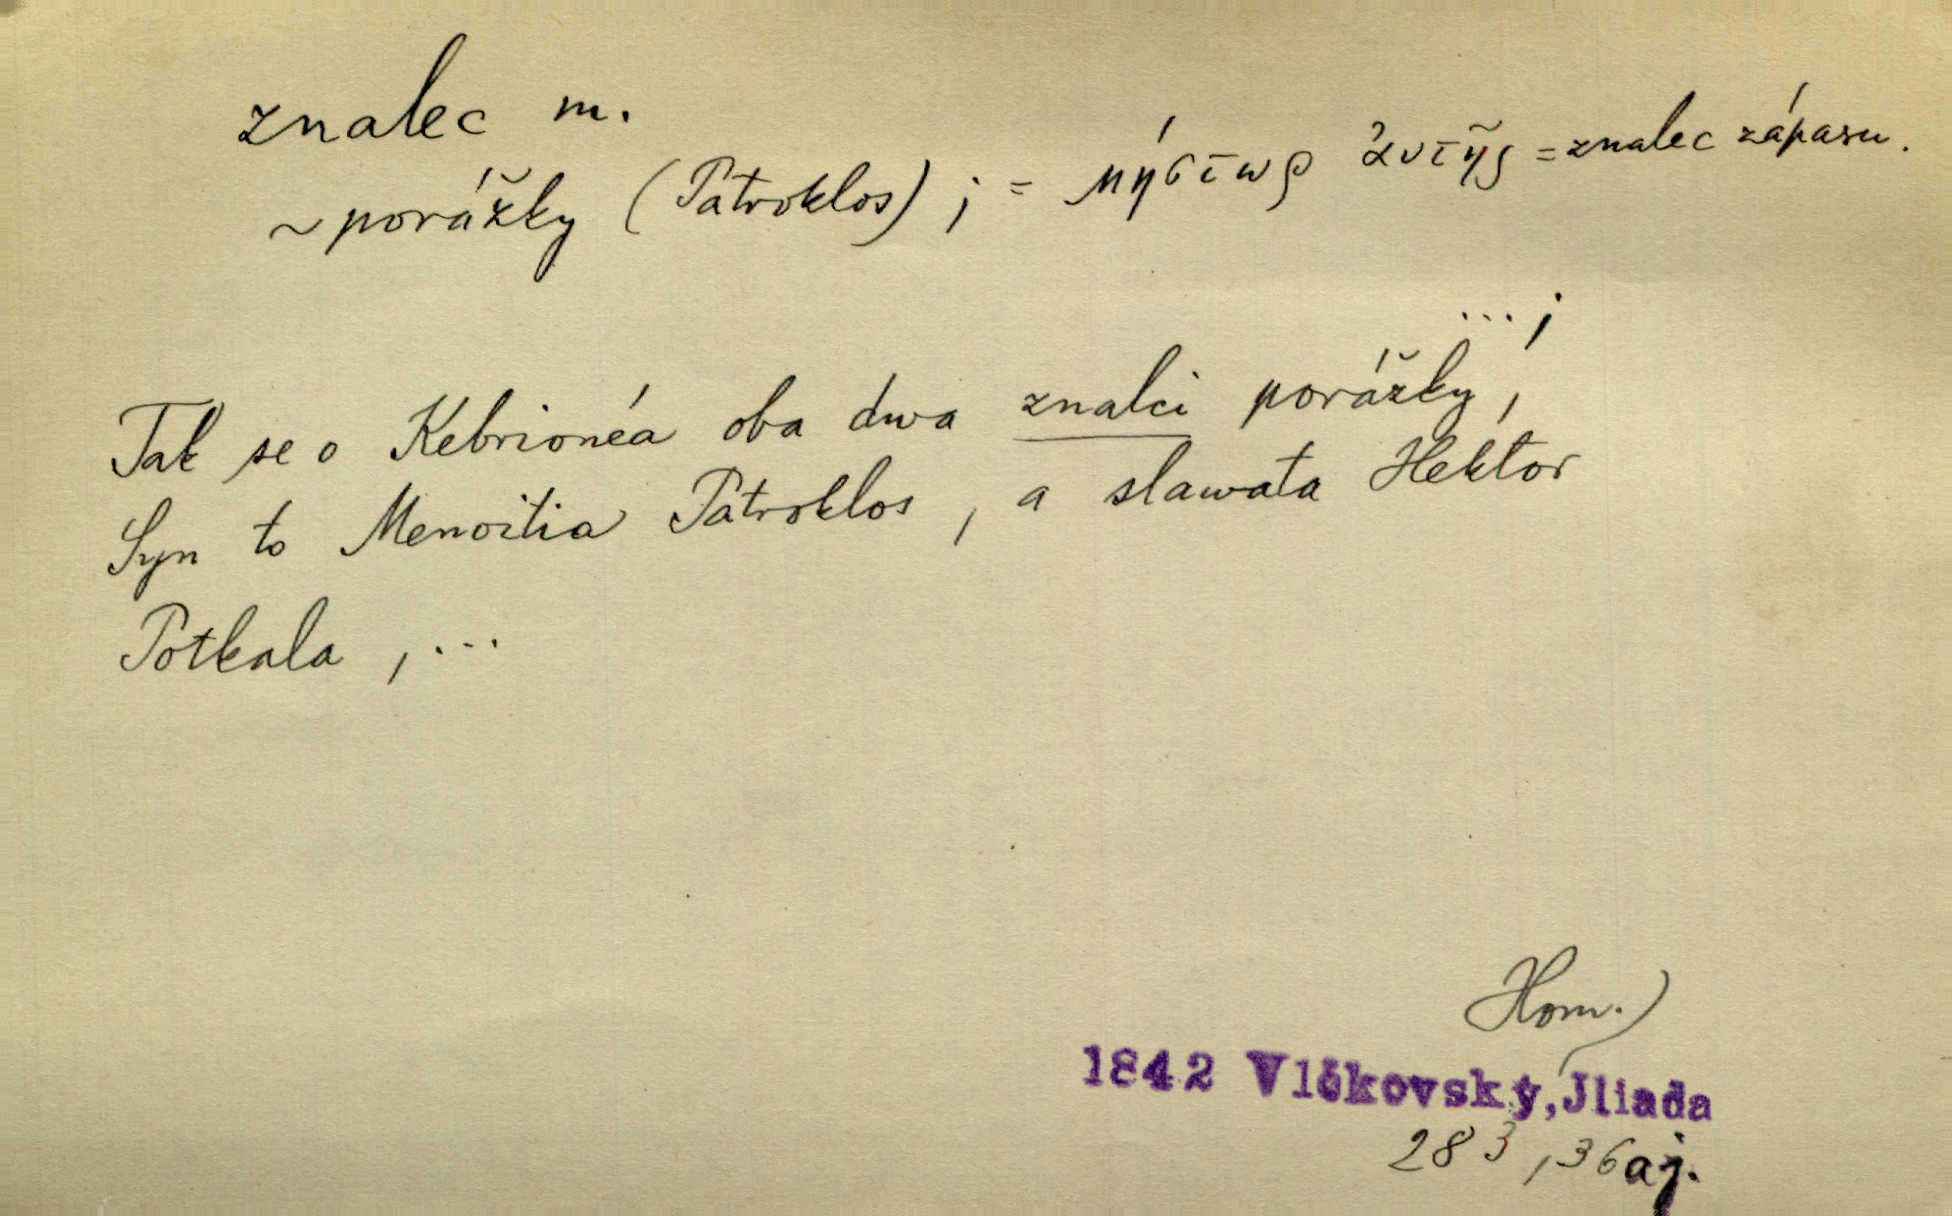 znalec m.
~ porážky (Patroklos) ; = μήστωρ ἀυτῆς = znalec zápasu.
... ;
Tak se o Kebrionéa oba dwa znalci porážky,
Syn to Menoitia Patroklos, a slawata Hektor
Potkala, ...
Hom.)
1842 Vlčkovský, Jliada
283, 36 aj.